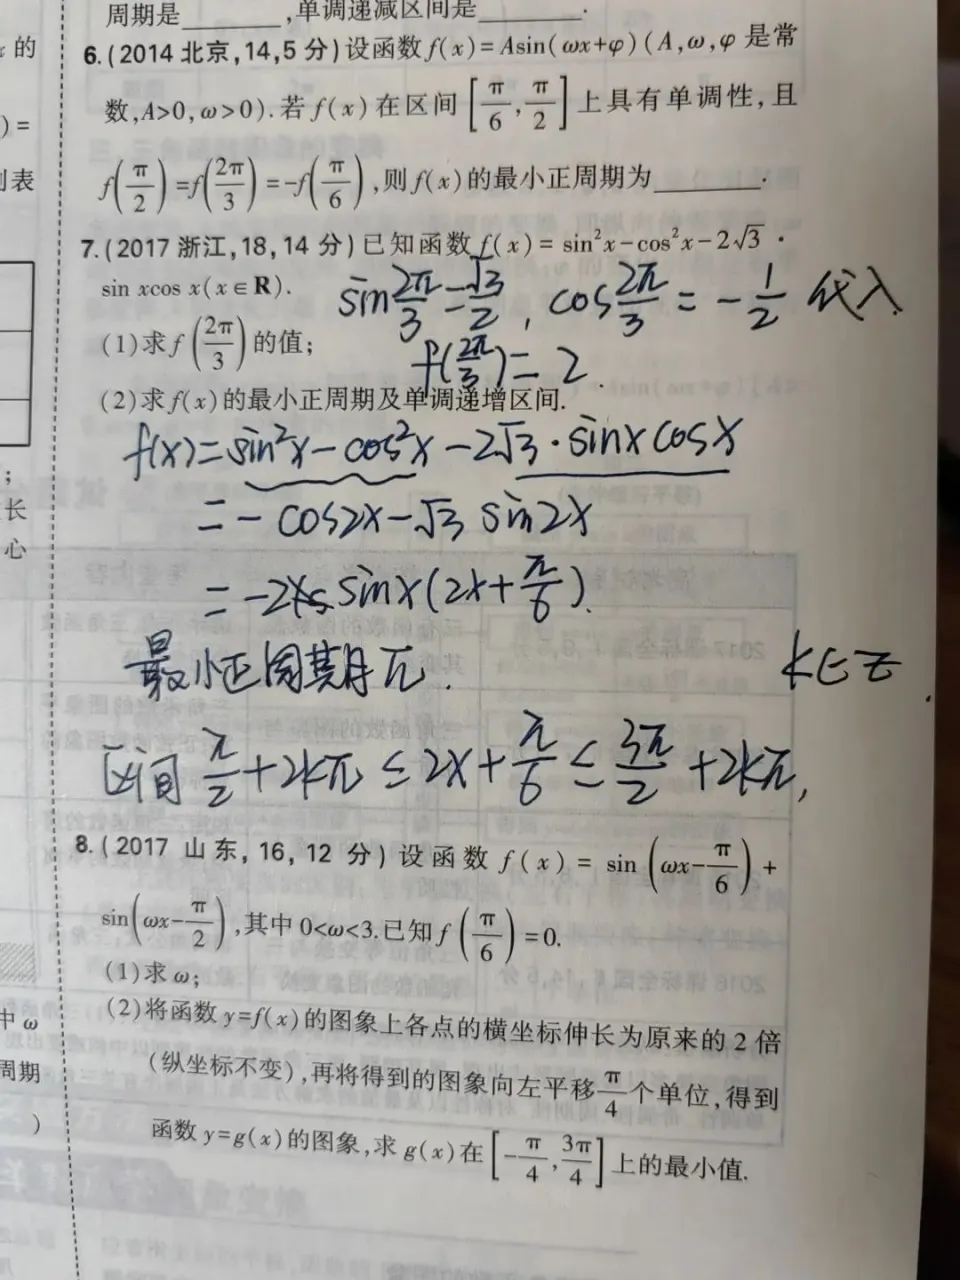 周期是________,单调递减区间是________.
6.(2014北京,14,5分)设函数f(x)=Asin(ωx+φ)(A,ω,φ是常
数,A>0,ω>0).若f(x)在区间[π/6,π/2]上具有单调性,且
f(π/2)=f(2π/3)=-f(π/6),则f(x)的最小正周期为________.
7.(2017浙江,18,14分)已知函数f(x)=sin²x-cos²x-2√3·
sin xcos x(x∈R).
sin2π/3-√3/2, cos2π/3=-1/2 代入
(1)求f(2π/3)的值;
f(2π/3)=2.
(2)求f(x)的最小正周期及单调递增区间.
f(x)=sin²x-cos²x-2√3·sinxcosx
=-cos2x-√3 sin2x
=-2 sinx(2x+π/6).
最小正周期π. k∈Z
区间 π/2+2kπ≤2x+π/6≤3π/2+2kπ,
8.(2017山东,16,12分)设函数f(x)=sin(ωx-π/6)+
sin(ωx-π/2),其中0<ω<3.已知f(π/6)=0.
(1)求ω;
(2)将函数y=f(x)的图象上各点的横坐标伸长为原来的2倍
(纵坐标不变),再将得到的图象向左平移π/4个单位,得到
函数y=g(x)的图象,求g(x)在[-π/4,3π/4]上的最小值.
的
)=
列表
;
长
心
中ω
周期
)